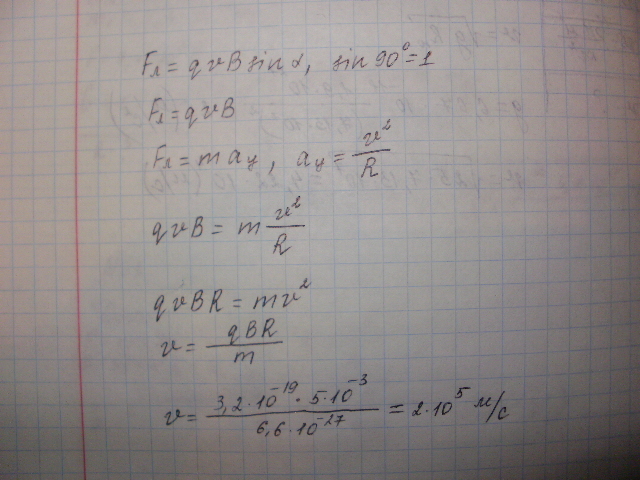 Fл = qvBsinα, sin90°=1
Fл = qvB
Fл = maц, aц = v²/R
qvB = m v²/R
qvBR = mv²
v = qBR/m
v = 3,2·10⁻¹⁹·5·10⁻³/6,6·10⁻²⁷ = 2·10⁵ м/с